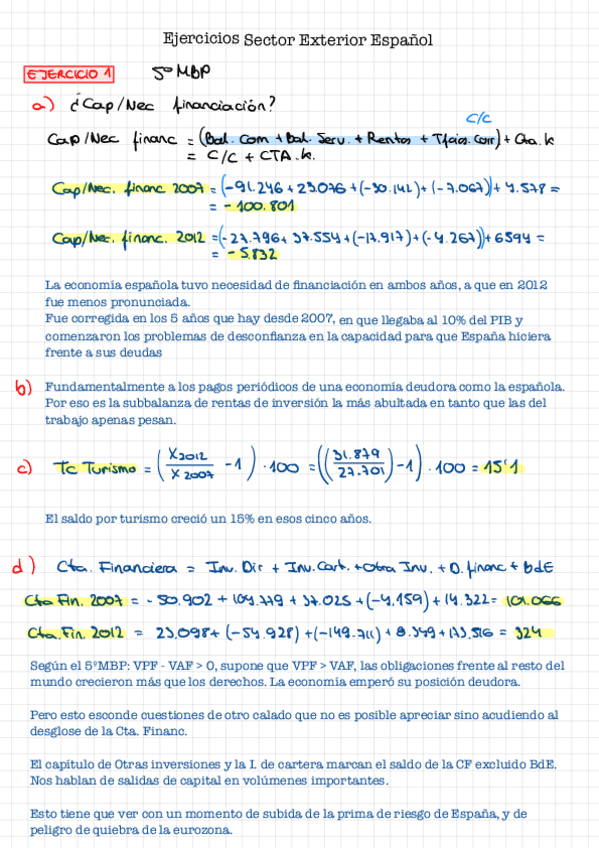 Ejercicios Sector Exterior Español
EJERCICIO 1 5º MBP
a) ¿Cap/Nec financiación?
C/C
Cap/Nec financ = (Bal. Com + Bal. Serv. + Rentas + Tfcias. Corr) + Cta. k
= C/C + CTA. k.
Cap/Nec. financ 2007 = (-91.246 + 23.076 + (-30.142) + (-7.067)) + 4.578 =
= - 100.801
Cap/Nec. financ. 2012 = (-27.796 + 37.554 + (-17.917) + (-4.267)) + 6594 =
= - 5.832
La economía española tuvo necesidad de financiación en ambos años, a que en 2012
fue menos pronunciada.
Fue corregida en los 5 años que hay desde 2007, en que llegaba al 10% del PIB y
comenzaron los problemas de desconfianza en la capacidad para que España hiciera
frente a sus deudas
b) Fundamentalmente a los pagos periódicos de una economía deudora como la española.
Por eso es la subbalanza de rentas de inversión la más abultada en tanto que las del
trabajo apenas pesan.
c) Tc Turismo = (X2012 / X2007 - 1) · 100 = ((31.879 / 27.701) - 1) · 100 = 15'1
El saldo por turismo creció un 15% en esos cinco años.
d) Cta. Financiera = Inv. Dir + Inv. Cart. + Otra Inv. + D. financ + BdE
Cta Fin. 2007 = - 50.902 + 104.779 + 37.025 + (-4.159) + 14.322 = 101.066
Cta. Fin 2012 = 23.098 + (-54.928) + (-149.711) + 8.349 + 173.516 = 324
Según el 5ºMBP: VPF - VAF > 0, supone que VPF > VAF, las obligaciones frente al resto del
mundo crecieron más que los derechos. La economía emperó su posición deudora.
Pero esto esconde cuestiones de otro calado que no es posible apreciar sino acudiendo al
desglose de la Cta. Financ.
El capitulo de Otras inversiones y la I. de cartera marcan el saldo de la CF excluido BdE.
Nos hablan de salidas de capital en volúmenes importantes.
Esto tiene que ver con un momento de subida de la prima de riesgo de España, y de
peligro de quiebra de la eurozona.